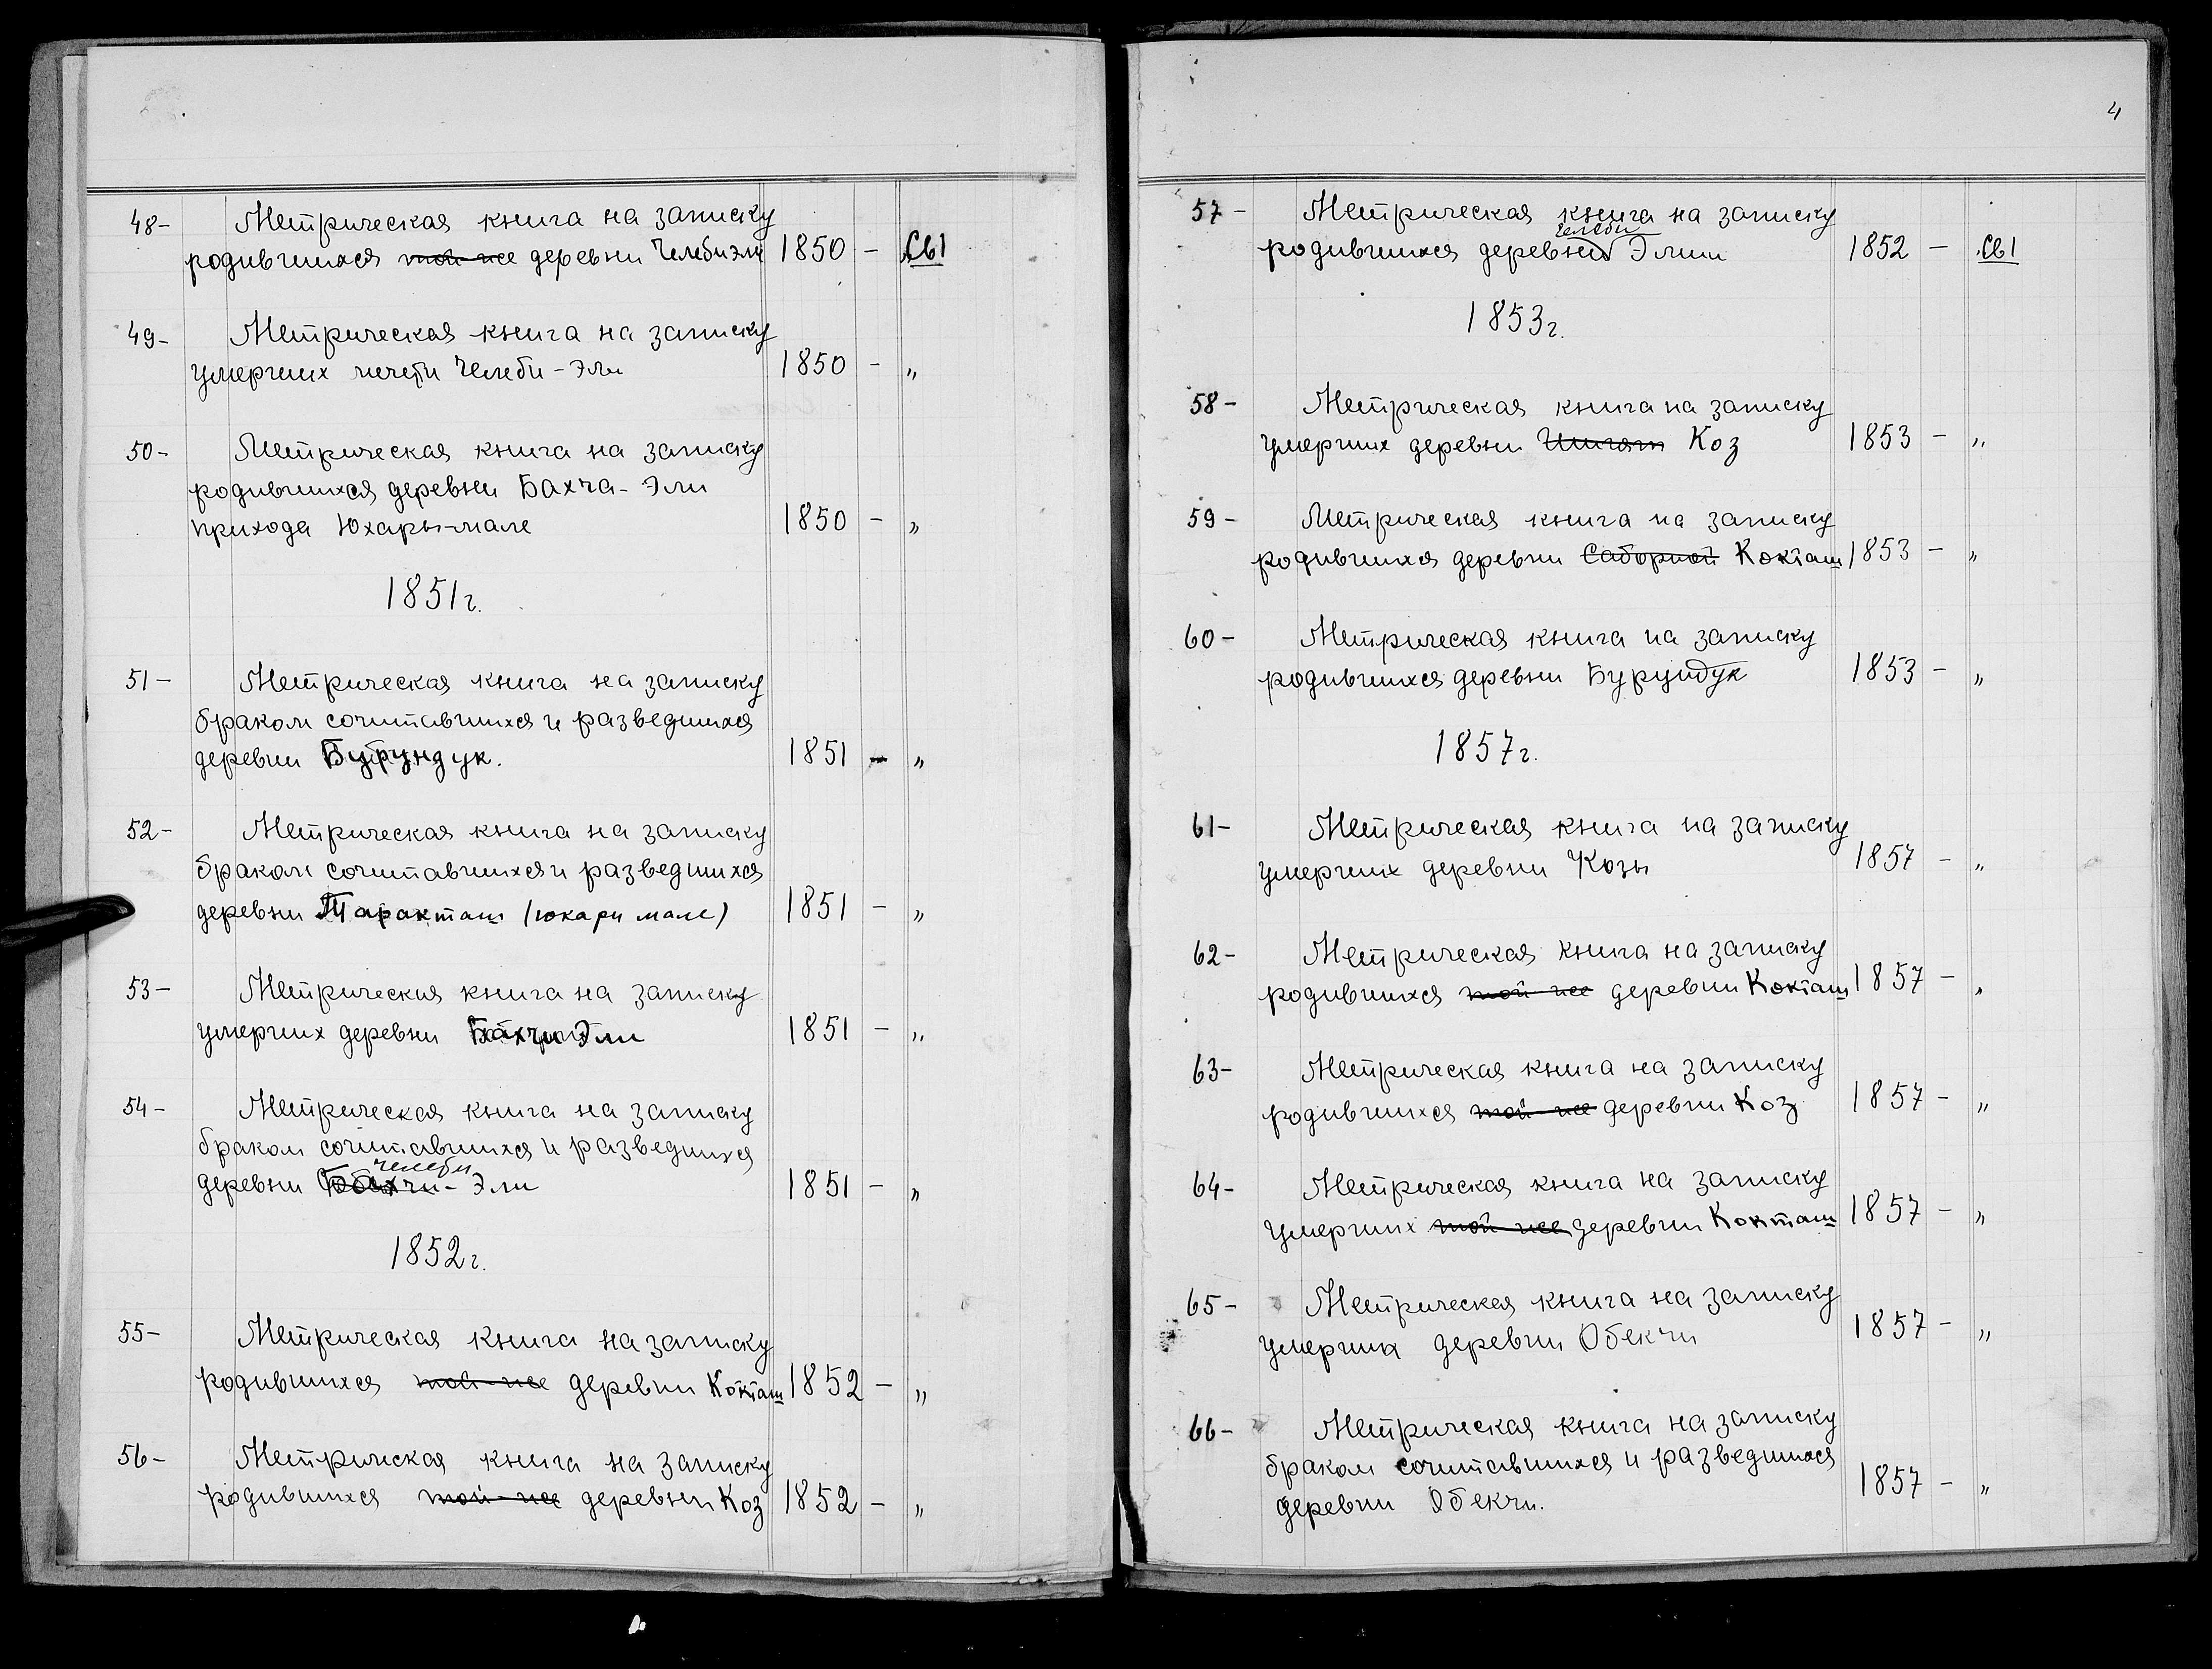 48- Метрическая книга на записку
родившихся той-же деревни Челебиэли 1850 - Св1
49- Метрическая книга на записку
умерших мечети Челеби-Эли 1850 - "
50- Метрическая книга на записку
родившихся деревни Бахча-Эли
прихода Юхары-мале 1850 - "
1851г.
51- Метрическая книга на записку
браком сочитавшихся и разведшихся
деревни Бурундук. 1851 - "
52- Метрическая книга на записку
браком сочитавшихся и разведшихся
деревни Таракташ (юкари мале) 1851 - "
53- Метрическая книга на записку
умерших деревни Бахчи Эли 1851 - "
54- Метрическая книга на записку
браком сочитавшихся и разведшихся
челеби
деревни Бахчи-Эли 1851 - "
1852г.
55- Метрическая книга на записку
родившихся той-же деревни Кокташ 1852 - "
56- Метрическая книга на записку
родившихся той-же деревни Коз 1852 - "
4
57- Метрическая книга на записку
челеби
родившихся деревни Элии 1852 - Св1
1853г.
58- Метрическая книга на записку
умерших деревни Коз 1853 - "
59- Метрическая книга на записку
родившихся деревни Саборной Кокташ 1853 - "
60- Метрическая книга на записку
родившихся деревни Бурундук 1853 - "
1857г.
61- Метрическая книга на записку
умерших деревни Козы 1857 - "
62- Метрическая книга на записку
родившихся той-же деревни Кокташ 1857 - "
63- Метрическая книга на записку
родившихся той-же деревни Коз 1857 - "
64- Метрическая книга на записку
умерших той-же деревни Кокташ 1857 - "
65- Метрическая книга на записку
умерших деревни Обекчи 1857 - "
66- Метрическая книга на записку
браком сочитавшихся и разведшихся
деревни Обекчи. 1857 - "